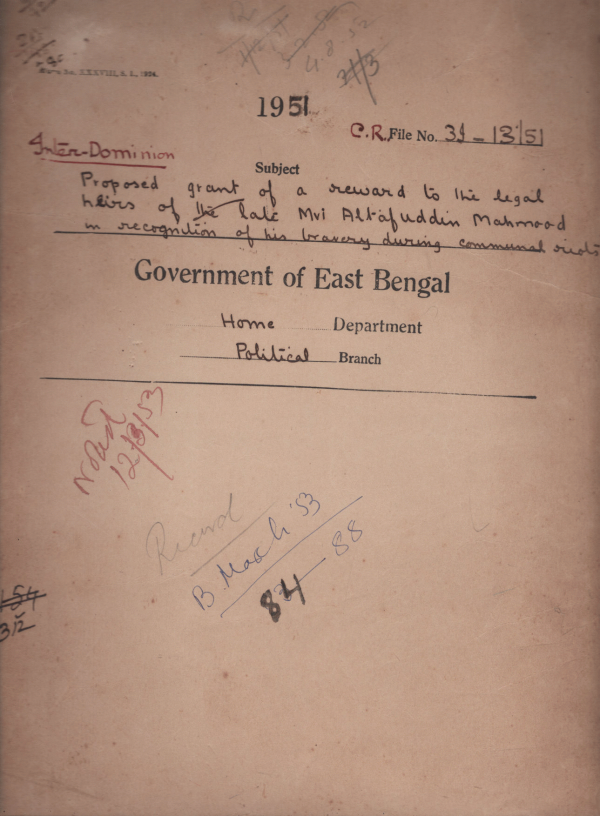 1951
C.R. File No. 31-13/51
Inter-Dominion
Subject
Proposed grant of a reward to the legal
heirs of the late Mvi Altafuddin Mahmood
in recognition of his bravery during communal riots
Government of East Bengal
Home Department
Political Branch
Noted
12/3/53
Record
B. March '53
84 - 88